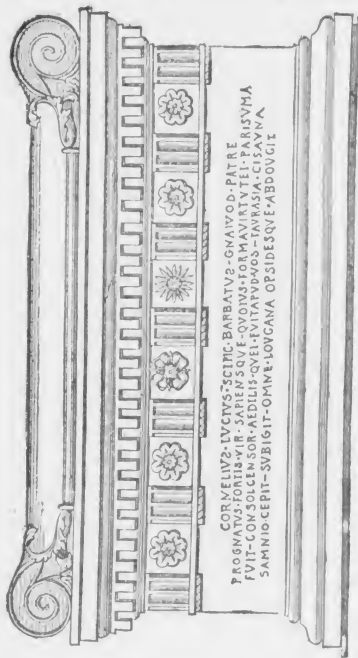 CORNELIVS·LVCIVS·SCIPIO·BARBATVS·GNAIVOD·PATRE
PROGNATVS·FORTIS·VIR·SAPIENSQVE·QVOIVS·FORMA·VIRTVTEI·PARISVMA
FVIT–CONSOL·CENSOR·AEDILIS·QVEI·FVIT·APVD·VOS–TAVRASIA·CISAVNA
SAMNIO·CEPIT–SVBIGIT·OMNE·LOVCANA·OPSIDESQVE·ABDOVCIT